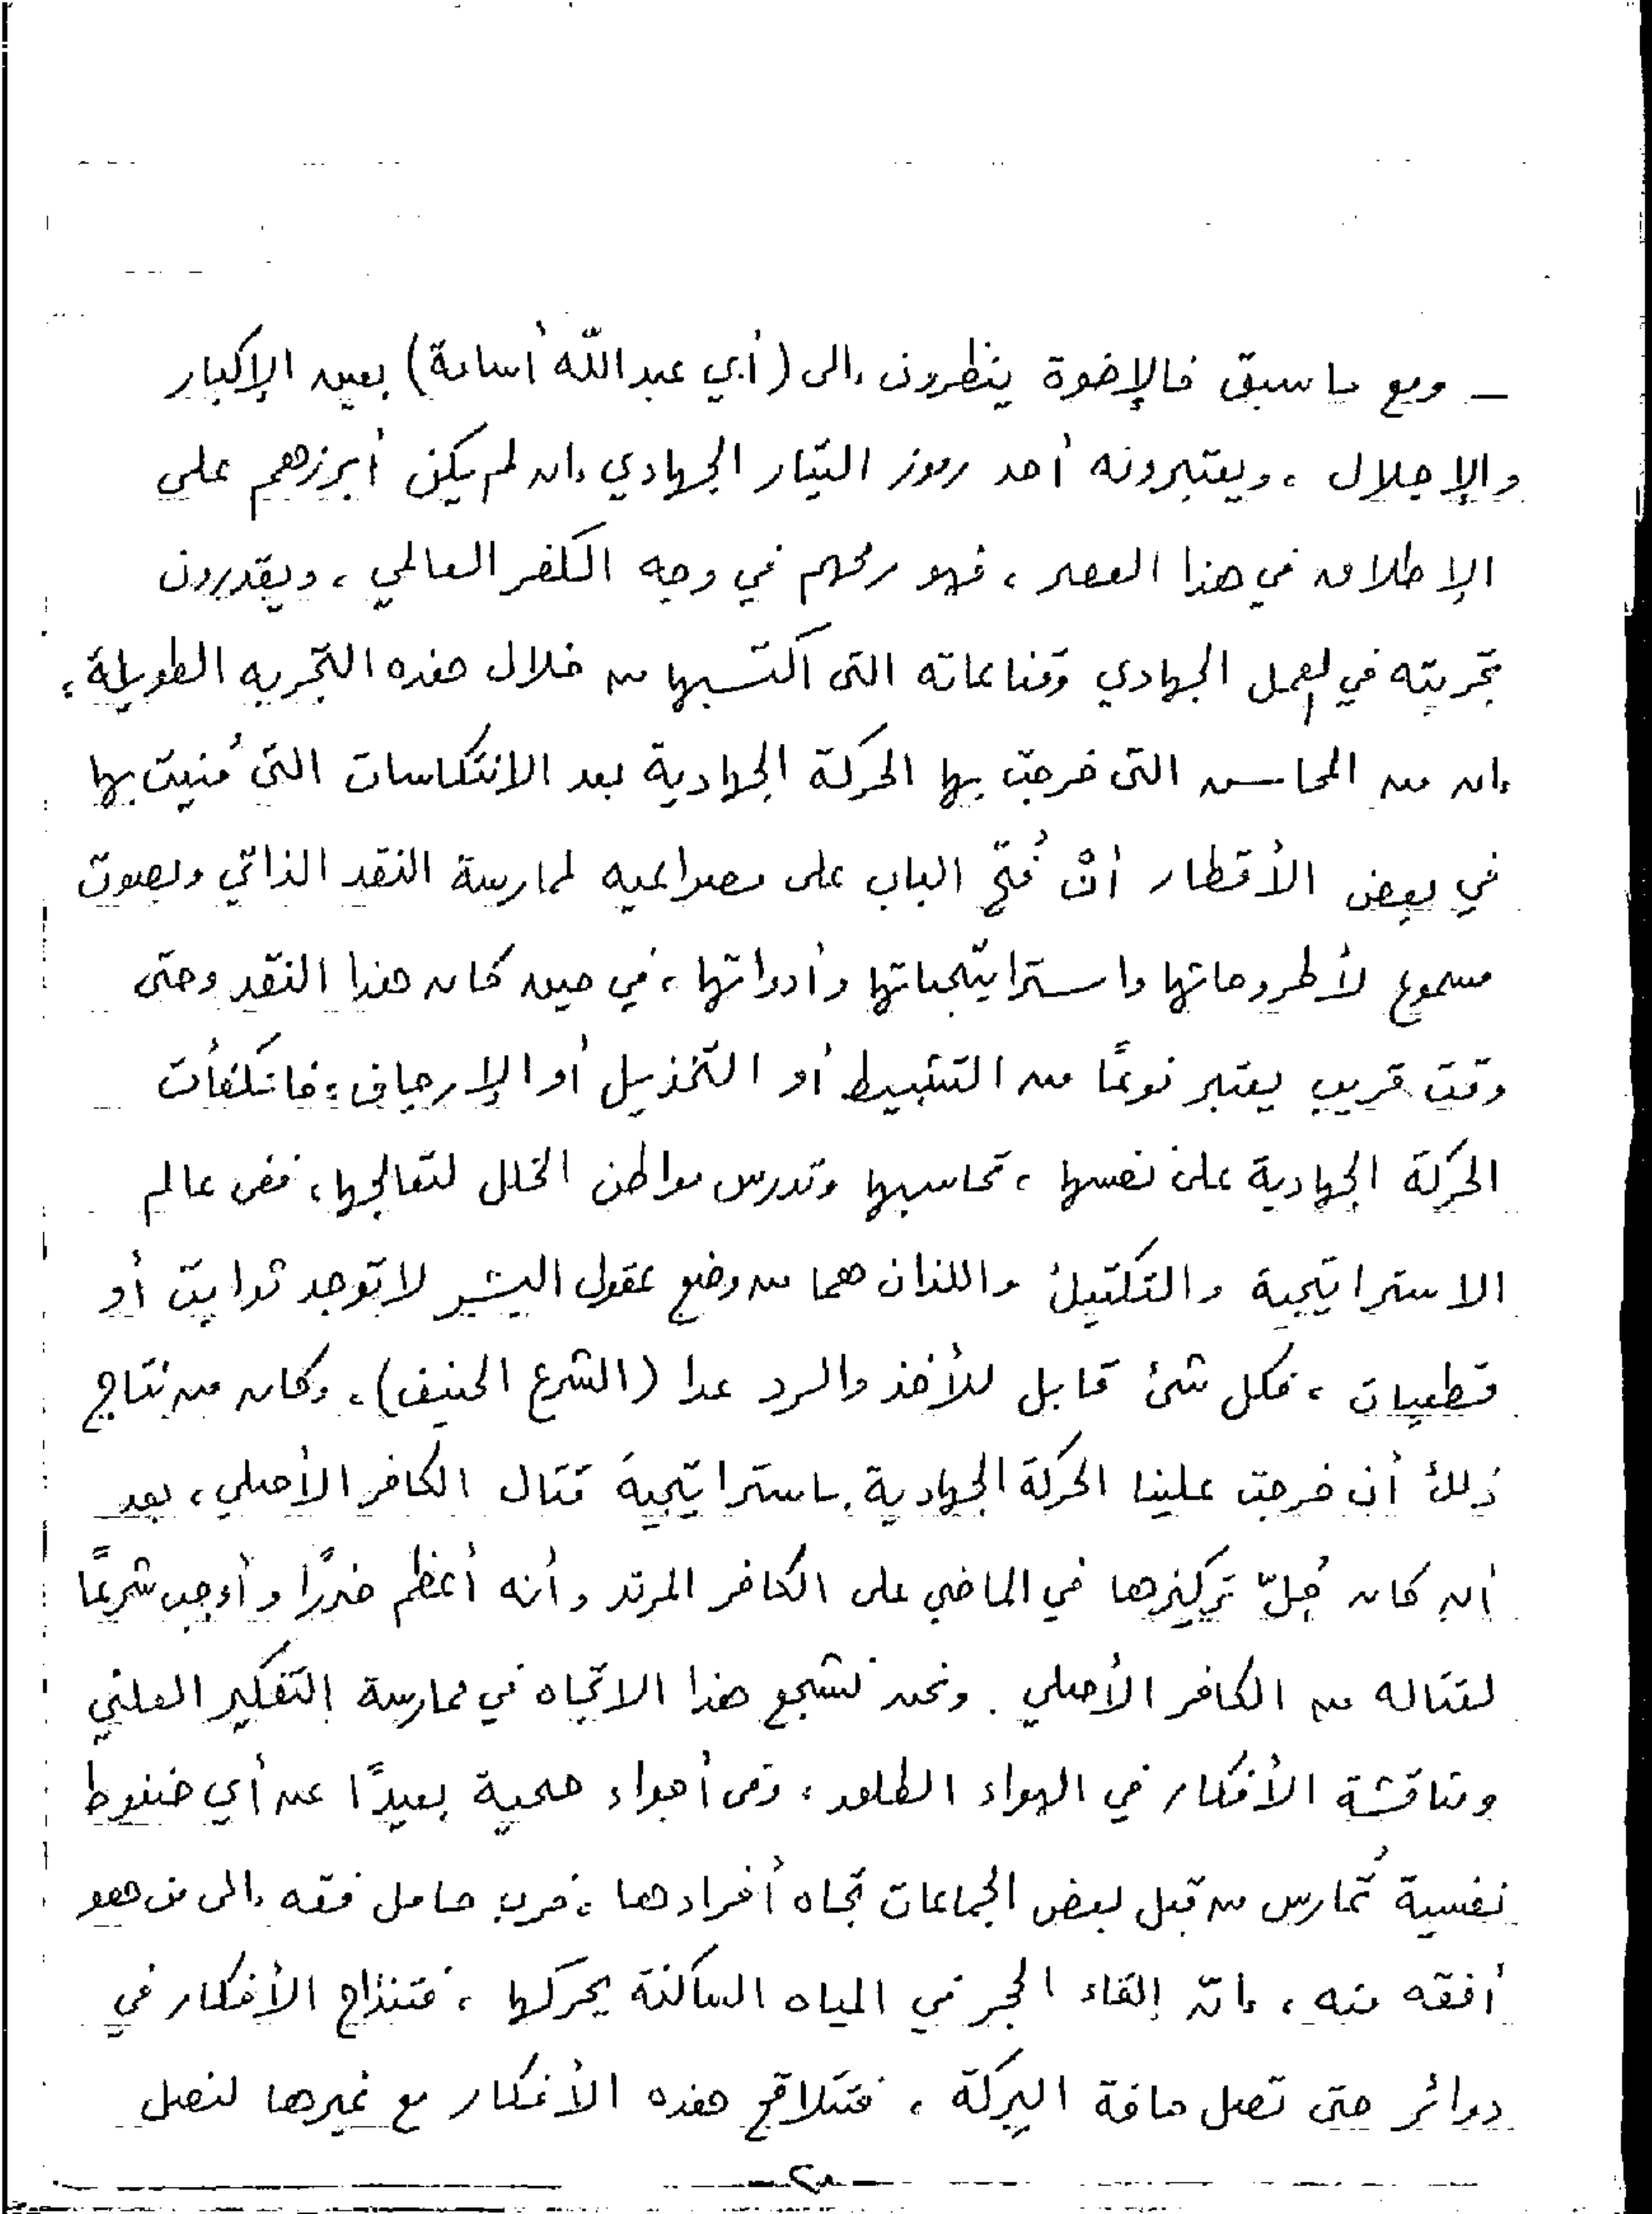 ـ ومع ما سبق فالإخوة ينظرون إلى (أبي عبد اللّه أُسامة) بعين الإكبار
والإجلال ، ويعتبرونه أحد رموز التيّار الجهادي إن لم يكن أبرزهم على
الإطلاق في هذا العصر ، فهو رمحهم في وجه الكفر العالمي ، ويقدرون
تجربته في العمل الجهادي وقناعاته التى اكتسبها من خلال هذه التجربه الطويلة ،
إن من المحاسن التى خرجت بها الحركة الجهادية بعد الانتكاسات التى مُنيت بها
في بعض الأقطار أنْ فُتح الباب على مصراعيه لممارسة النقد الذاتي وبصوت
مسموع لأطروحاتها واستراتيجياتها وأدواتها ، في حين كان هذا النقد وحتى
وقت قريب يعتبر نوعًا من التثبيط أو التخذيل أو الإرجاف ، فانكفأت
الحركة الجهادية على نفسها ، تحاسبها وتدرس مواطن الخلل لتعالجها ، ففى عالم
الاستراتيجية والتكتيك واللذان هما من وضع عقول البشر لا توجد ثوابت أو
قطعيات ، فكل شئ قابل للأخذ والرد عدا (الشرع الحنيف) ، وكان من نتاج
ذلك أن خرجت علينا الحركة الجهادية باستراتيجية قتال الكافر الأصلي ، بعد
أن كان جُلّ تركيزها في الماضي على الكافر المرتد وأنه أعظم ضررًا وأوجب شرعًا
لقتاله من الكافر الأصلي . ونحن نشجع هذا الاتجاه في ممارسة التفكير العلني
ومناقشة الأفكار في الهواء الطلق ، وفى أجواء صحية بعيدًا عن أي ضغوط
نفسية تُمارس من قبل بعض الجماعات تجاه أفرادها ، فرب حامل فقه إلى من هو
أفقه منه ، إنّ إلقاء الحجر في المياه الساكنة يحركها ، فتنداح الأفكار في
دوائر حتى تصل حافة البركة ، فتتلاقح هذه الأفكار مع غيرها لنصل